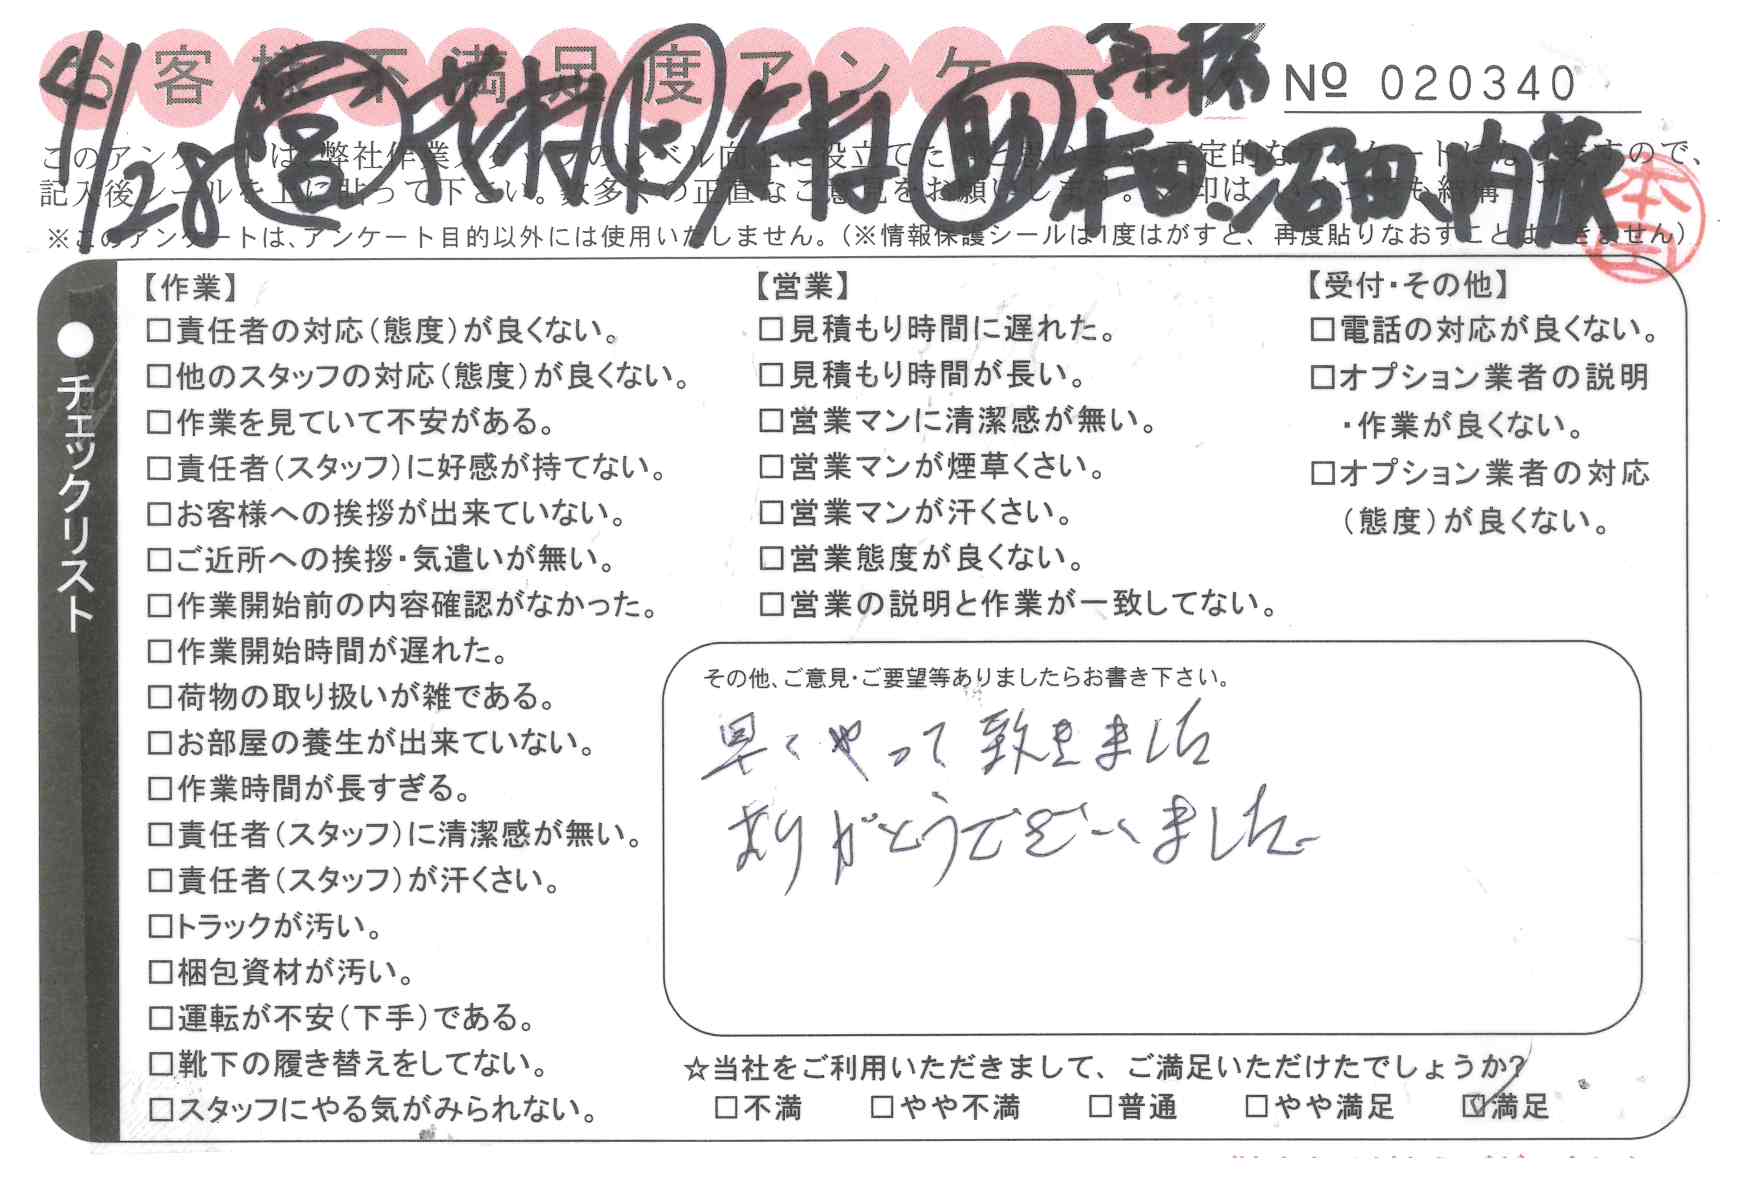 お客様不満足度アンケート
№ 020340
4/28 営 本田、沼田、内藤
助
このアンケートは、弊社作業スタッフのレベル向上に役立てたいと思います。否定的なアンケートになりますので、
記入後シールを上に貼って下さい。数多くの正直なご意見をお願いします。
※このアンケートは、アンケート目的以外には使用いたしません。(※情報保護シールは1度はがすと、再度貼りなおすことはできません)
●チェックリスト
【作業】
□責任者の対応(態度)が良くない。
□他のスタッフの対応(態度)が良くない。
□作業を見ていて不安がある。
□責任者(スタッフ)に好感が持てない。
□お客様への挨拶が出来ていない。
□ご近所への挨拶・気遣いが無い。
□作業開始前の内容確認がなかった。
□作業開始時間が遅れた。
□荷物の取り扱いが雑である。
□お部屋の養生が出来ていない。
□作業時間が長すぎる。
□責任者(スタッフ)に清潔感が無い。
□責任者(スタッフ)が汗くさい。
□トラックが汚い。
□梱包資材が汚い。
□運転が不安(下手)である。
□靴下の履き替えをしてない。
□スタッフにやる気がみられない。
【営業】
□見積もり時間に遅れた。
□見積もり時間が長い。
□営業マンに清潔感が無い。
□営業マンが煙草くさい。
□営業マンが汗くさい。
□営業態度が良くない。
□営業の説明と作業が一致してない。
【受付・その他】
□電話の対応が良くない。
□オプション業者の説明
・作業が良くない。
□オプション業者の対応
(態度)が良くない。
その他、ご意見・ご要望等ありましたらお書き下さい。
早くやって致きました
ありがとうでございました。
☆当社をご利用いただきまして、ご満足いただけたでしょうか?
□不満 □やや不満 □普通 □やや満足 ☑満足